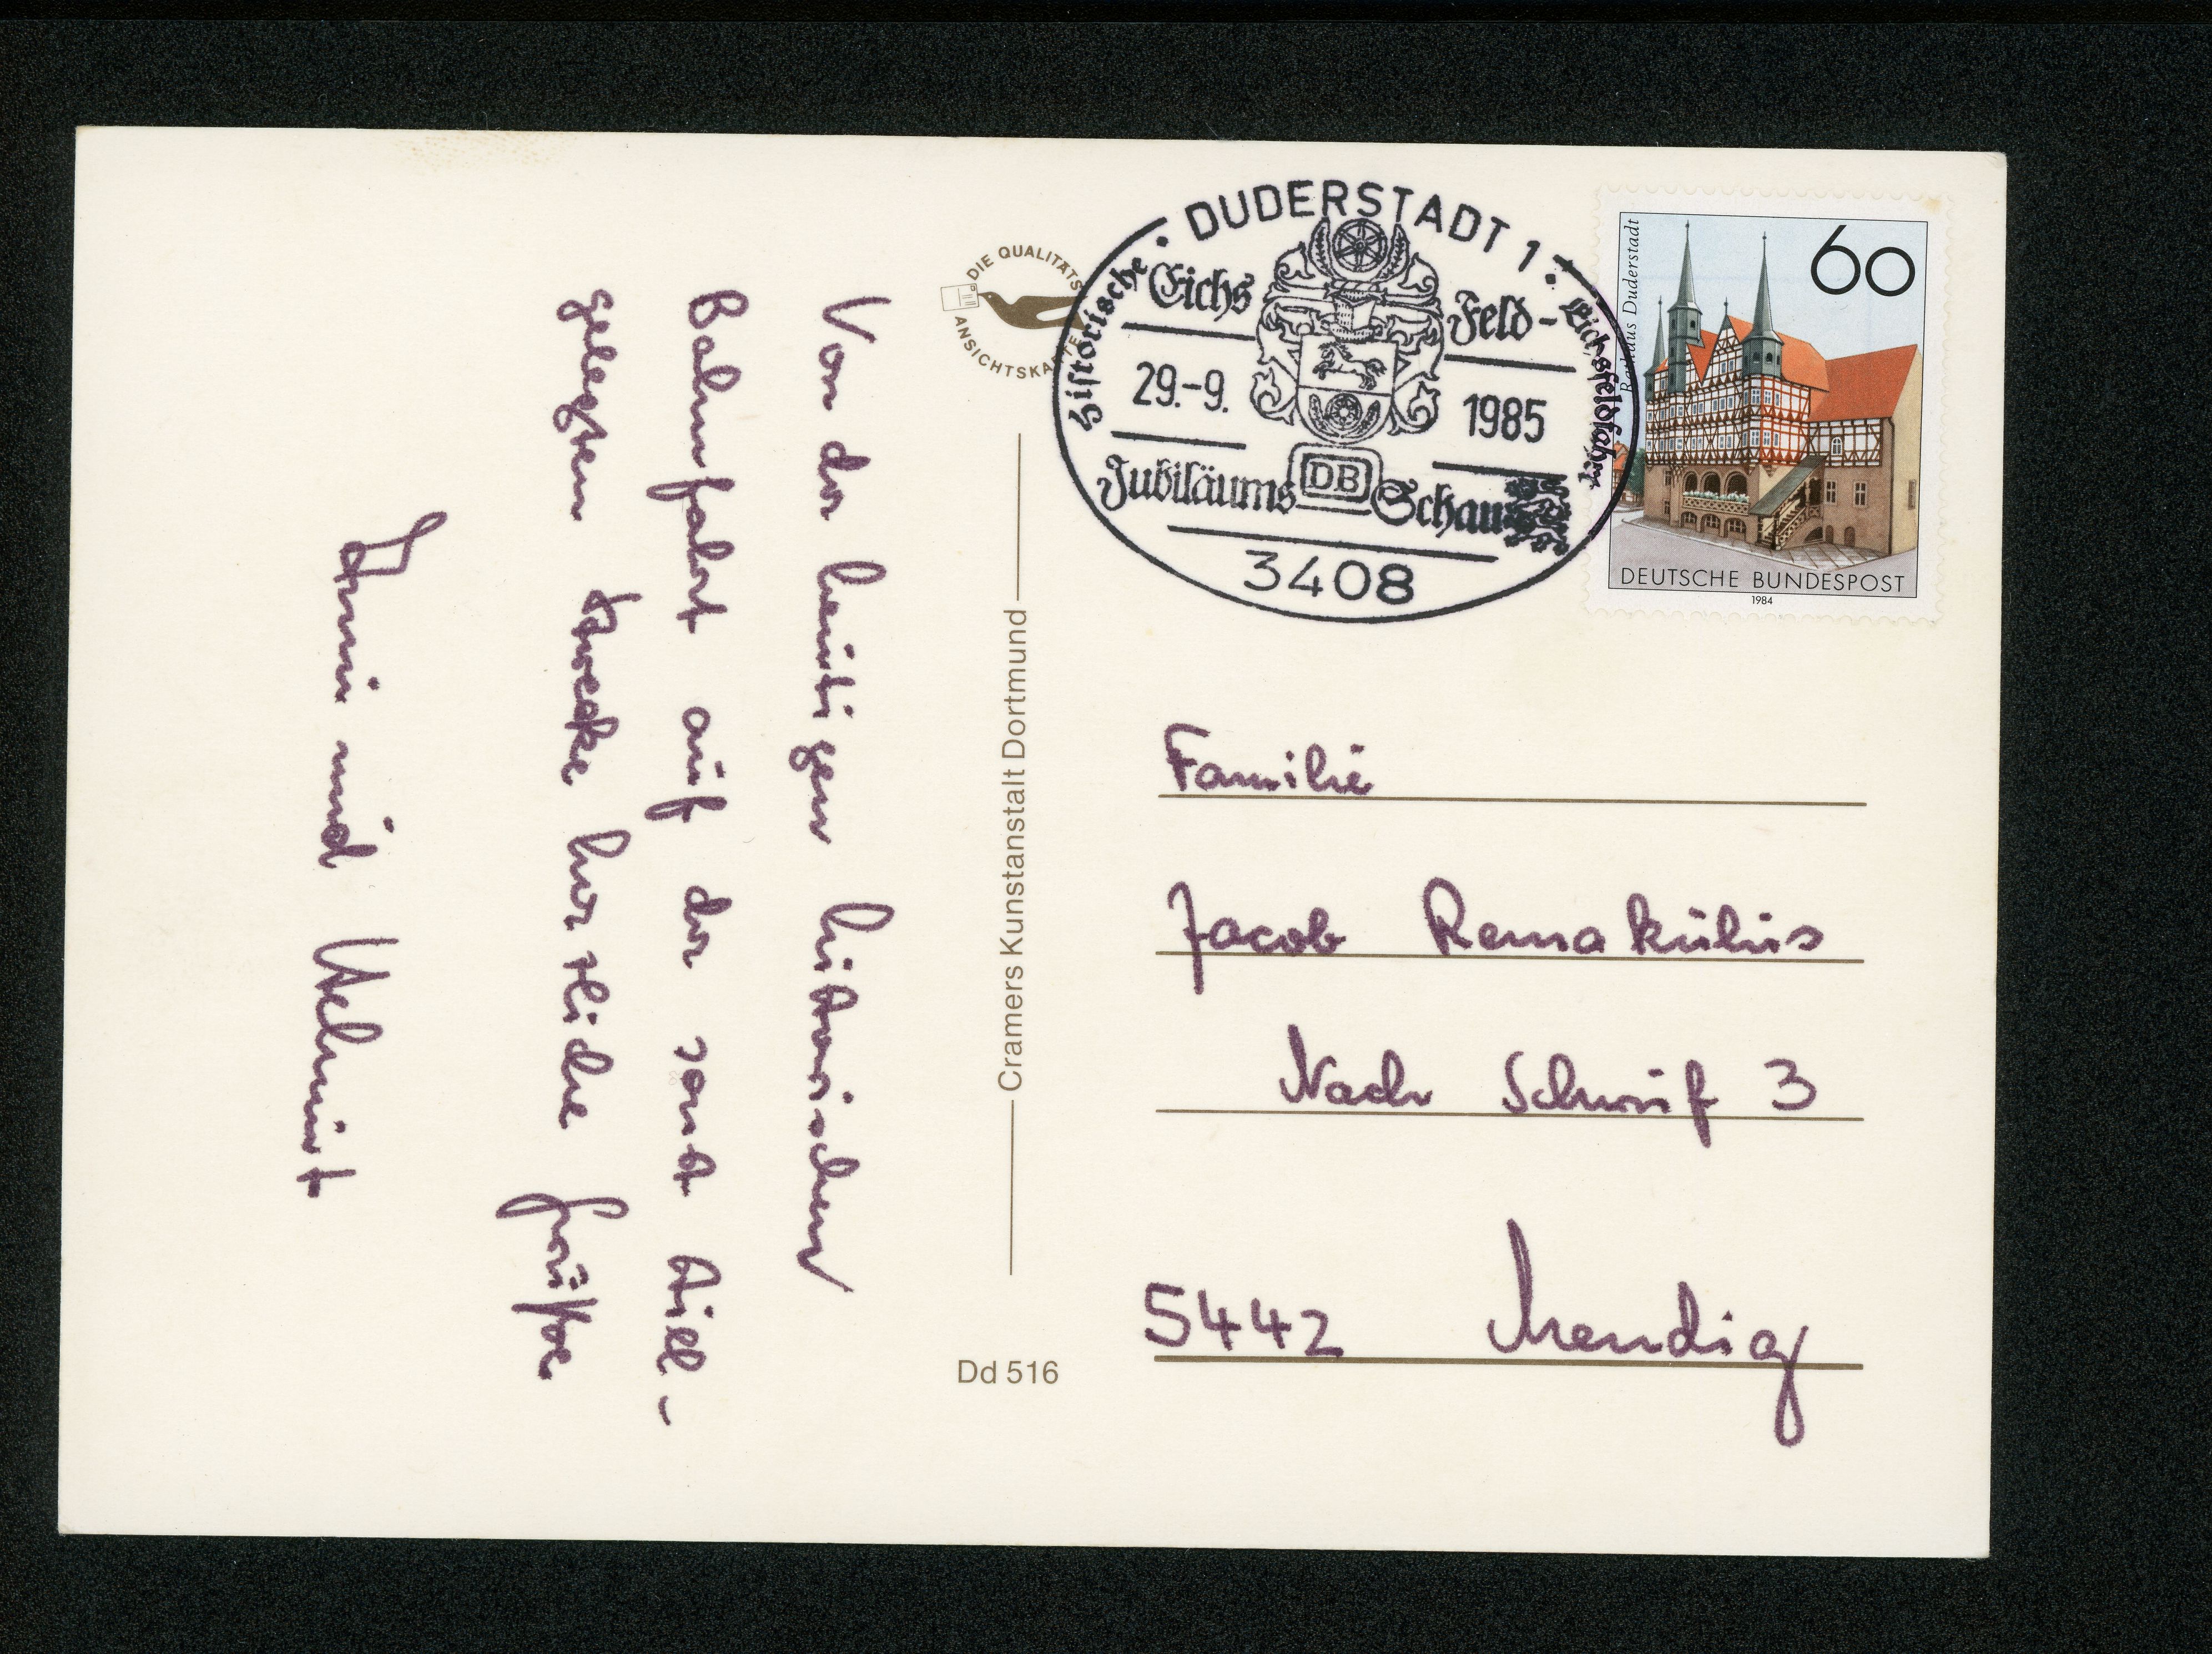 Von der heutigen historischen
Bahnfahrt auf der sonst still-
gelegten Strecke herzliche Grüße
und Helmut
DIE QUALITÄTS
ANSICHTSKARTE
Cramers Kunstanstalt Dortmund
Dd 516
· DUDERSTADT 1 ·
Historische Eichsfeldfahrt
Eichs Feld-
29.-9. 1985
Jubiläums DB Schau
3408
Rathaus Duderstadt
60
DEUTSCHE BUNDESPOST
1984
Familie
Jacob Remakülüs
Nach Schruf 3
5442 Mendig